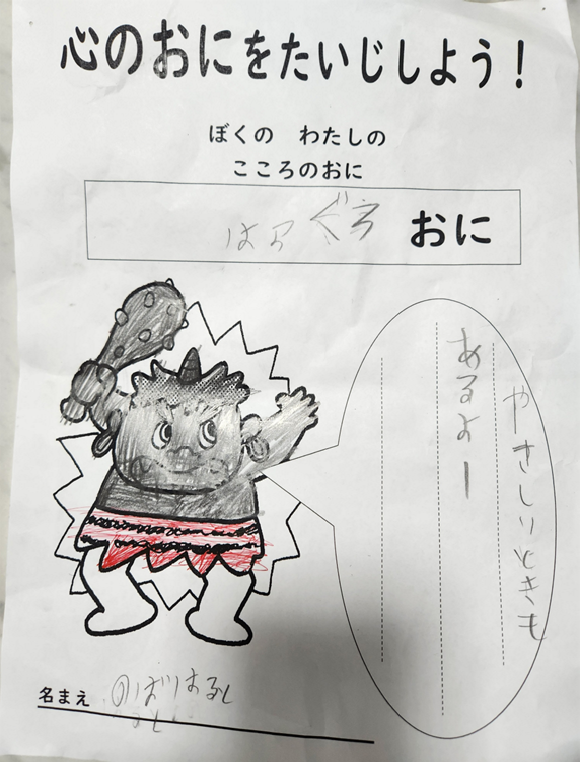 心のおにをたいじしよう！
ぼくの わたしの
こころのおに
おに
やさしいときも
あるよー
名まえ